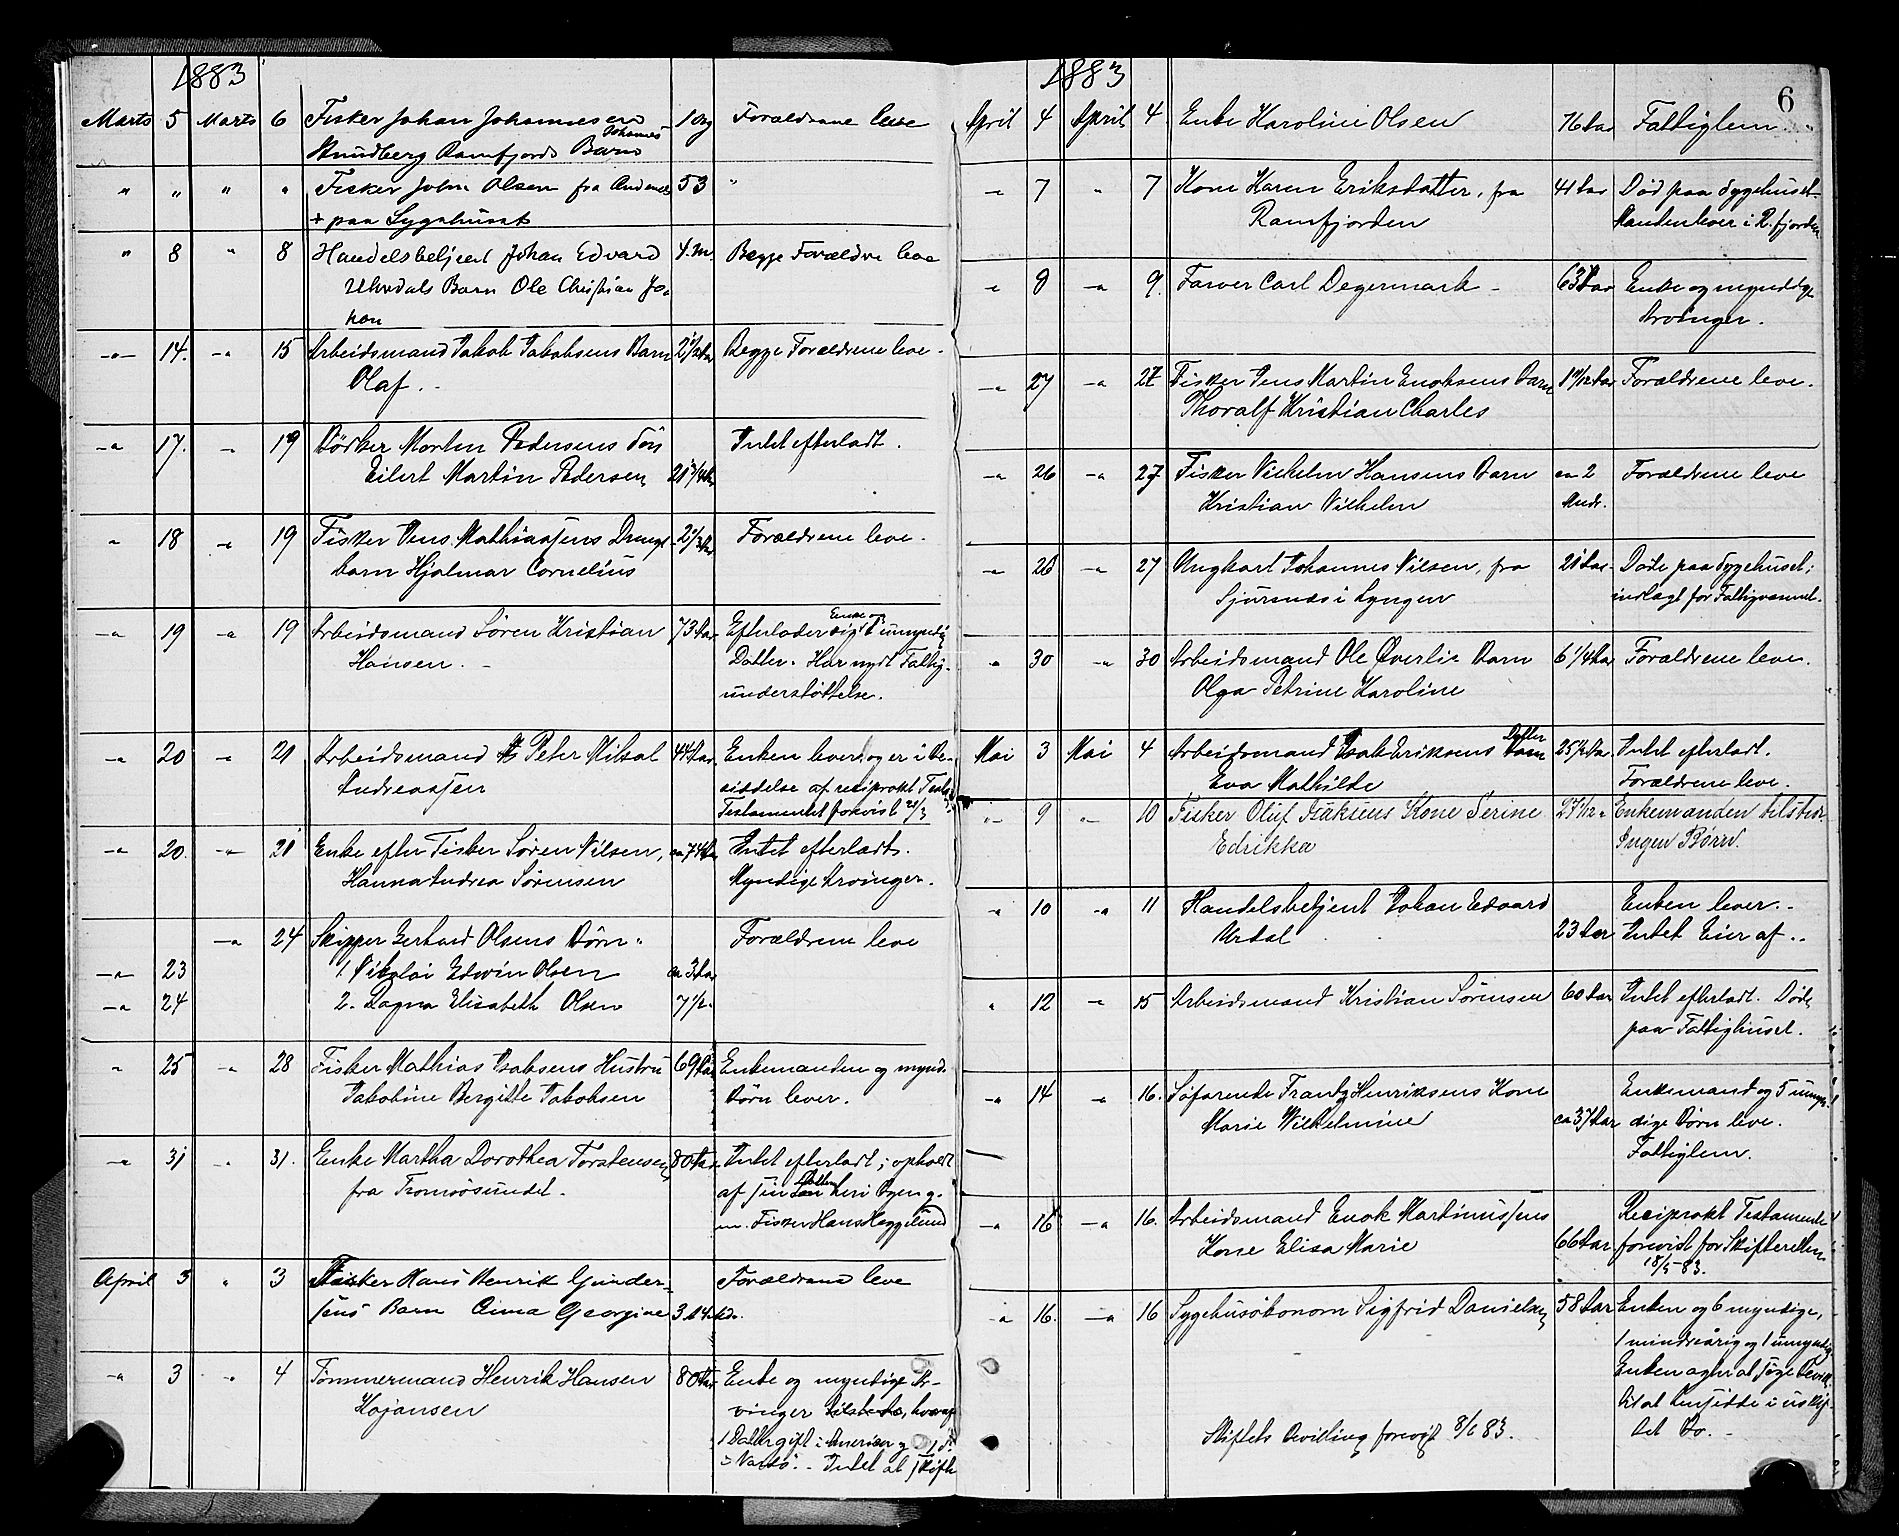 1883
Marts 5 Marts 6 Fisker Johan Johannesen 1 Dag Forældrene leve
Johannes
Strudberg Ramfjords Barn
" " " " Fisker John Olsen fra 53 "
+ paa Sygehuset
" 8 " 8 Handelsbetjent Johan Edvard 4. m. Begge Forældre leve
Barn Ole Christian Jo-
han
-"- 14. -" 15 Arbeidsmand Jakob Jakobsens Barn 2 1/2 Aar Begge Forældrene leve.
Olaf. -
-" 17. -" 19 Bødker Morten Pedersens Søn Intet efterladt.
Eilert Martin Pedersen 21 3/4 Aar
" 18 -" 19 Fisker Jens Mathiassens Drenge- Forældrene leve.
barn Hjalmar Cornelius
-" 19 -" 19 Arbeidsmand Søren Kristian 73 Aar Efterlader sig 1 umyndig
Enke og
Hansen. - Datter. Har nydt Fattig-
understøttelse.
-" 20 -" 21 Arbeidsmand Peter Mikal 44 Aar Enken lever og er i Be-
Andreassen siddelse af reciprokt Testa-
Testamentet forevist 21/3
-" 20. -" 21 Enke efter Fisker Søren Nilsen, ca 74 Aar Intet efterladt.
Hanna Andrea Sørensen Myndige Arvinger.
-" 24 Skipper Gerhard Olsens Børn: Forældrene leve
-" 23 1. Nikolai Edvin Olsen ca 3 Aar
-" 24 2. Dagna Elisabeth Olsen 7 1/2 "
" 25 -" 28 Fisker Mathias Isaksens Hustru 69 Aar Enkemanden og mynd.
Jakobine Bergitte Jakobsen Børn lever.
-" 31 -" 31. Enke Martha Dorothea Torstensen 80 Aar Intet efterladt; opholdt
fra Tromsøsundet. af sin Datter
m. Fisker Hans Heggelund
April 3 " 3 Fisker Hans Henrik Gunder- Forældrene leve
sens Barn Anna Georgine 3
-" 3 -" 4 Tømmermand Henrik Hansen 80 Aar Enke og myndige Ar-
Kojansen vinger tilstede, hvoraf
1 Datter gift i Amerika og 1 d°
i Vardø. - Intet at skifte
1883
6
April 4 April 4 Enke Karoline Olsen 76 Aar Fattiglem.
-" 7 " 7 Kone Karen Eriksdatter, fra 41 Aar Død paa Sygehuset
Ramfjorden Manden lever i R.fjorden
-" 8 -" 9. Farver Carl Degermark - 63 Aar Enke og myndige
Arvinger.
-" 27 -" 27 Fisker Jens Martin Enoksens Barn Forældrene leve.
Thoralf Kristian Charles
-" 26 -" 27 Fisker Vilhelm Hansens Barn ca 2 Forældrene leve
Kristian Vilhelm Mndr.
-" 26 -" 27 Ungkarl Johannes Nilsen, fra 21 Aar Døde paa Sygehuset;
Sjursnæs i Lyngen indlagt for Fattigvæsenet.
" 30 -" 30 Arbeidsmand Ole Øverlie Barn 6 1/4 Aar Forældrene leve.
Olga Petrine Karoline
Mai 3 Mai 4 Arbeidsmand Isak Eriksens Datter 25 1/2 Aar Intet efterladt.
Eva Mathilde Forældrene leve.
-"- 9 -"- 10 Fisker Oluf Isaksens Kone Serine 27 Enkemanden tilstede.
Edrikka Ingen Børn.
-" 10 -" 11 Handelsbetjent Johan Edvard Enken lever. -
Urdal 23 Aar Intet Eier af. .
" 12 -" 15 Arbeidsmand Kristian Sørensen 60 Aar Intet efterladt. Døde
paa Fattighuset.
-" 14 -" 16. Søfarende Frantz Henriksens Kone Enkemand og 5 umyn-
Marie Vilhelmine ca 37 Aar dige Børn leve.
Fattiglem.
-" 16 -" 16. Arbeidsmand Enok Martinussens Reciprokt Testamente
Kone Elisa Marie 66 Aar forevist for Skifteretten
18/5 83.
-" 16. -" 16 Sygehusøkonom Sigfrid Danielsen 58 Aar Enken og 6 myndige,
1 mindreårig og 1 umyndig
Enken agter at søge Bevill.
til at hensidde i uskif-
tet Bo. -
Skiftets Bevilling forevist 8/6 83.